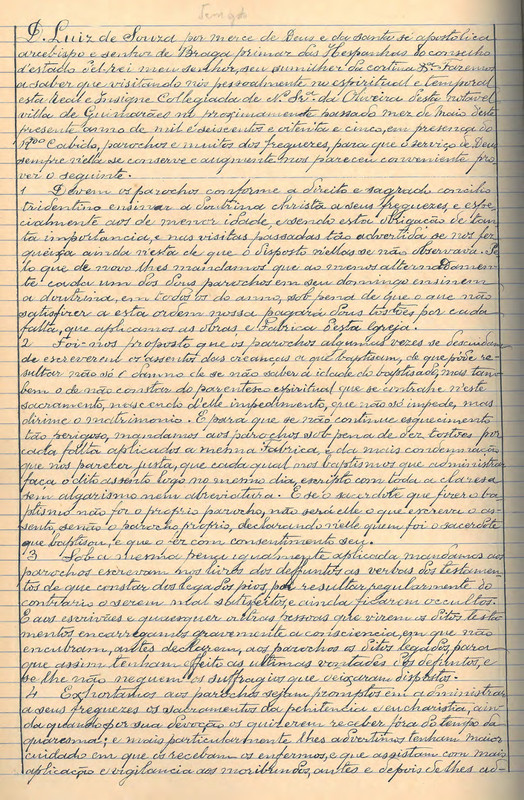 D. Luiz de Souza por merce de Deus e da santa sé apostolica
arcebispo e senhor de Braga primaz das Hespanhas do conselho
d'estado d'el-rei meu senhor, seu sumilher da cortina &a. Fazemos
a saber que visitando nós pessoalmente no espiritual e temporal
esta Real e Insigne Collegiada de N. Srª da Oliveira d'esta notavel
villa de Guimarães no proximamente passado mez de maio deste
presente anno de mil e seiscentos e oitenta e cinco, em presença do
Rdo Cabido, parochos e muitos dos freguezes, para que o serviço de Deus
sempre n'ella se conserve e augmente nos pareceu conveniente pro-
ver o seguinte.
1 Devem os parochos conforme a direito e sagrad. concilio
tridentino ensinar a doutrina christã a seus freguezes, e espe-
cialmente aos de menor idade, e sendo esta obrigação de tan-
ta importancia, e nas visitas passadas tão advertida se nos fez
queixa ainda n'esta de que o disposto n'ellas se não observava. Pe-
lo que de novo lhes mandamos que ao menos alternadamen-
te cada um dos dous parochos em seu domingo ensinem
a doutrina, em todos os do anno, sob pena de que o que não
satisfizer a esta ordem nossa pagará dous tostões por cada
falta, que applicamos as obras e Fabrica d'esta igreja.
2 Foi-nos proposto que os parochos algumas vezes se descuidam
de escreverem os assentos das creanças a que baptisam, de que póde re-
sultar não só o damno de se não saber a idade do baptisado, mas tam-
bem o de não constar do parentesco espiritual que se contrahe n'este
sacramento, nascendo d'elle impedimento, que não só impede, mas
dirime o matrimonio. E para que se não continue esquecimento
tão perigoso, mandamos aos parochos sob pena de dez tostões por
cada falta applicados a mesma Fabrica, e da mais condemnação
que nos parecer justa, que cada qual nos baptismos que administrar
faça o dito assento logo no mesmo dia, escripto com toda a claresa
sem algarismo nem abreviatura. E se o sacerdote que fizer o ba-
ptismo não fôr o proprio parocho, não será elle o que escreva o as-
sento, senão o parocho proprio, declarando n'elle quem foi o sacerdote
que baptisou, e que o fez com consentimento seu.
3 Sob a mesma pena egualmente applicada, mandamos aos
parochos escrevam nos livros dos defuntos as verbas dos testamen-
tos de que constar dos legados pios, por resultar regularmente do
contrario o serem mal satisfeitos, e ainda ficarem occultos.
E aos escrivães e quaesquer outras pessoas que virem os ditos testa-
mentos encarregamos gravemente a consciencia, em que não
encubram, antes declarem, aos parochos os ditos legados, para
que assim tenham effeito as ultimas vontades dos defuntos, e
se lhe não neguem os suffragios que deixaram dispostos.
4 Exhortamos aos parochos sejam promptos em administrar
a seus freguezes os sacramentos da penitencia e eucharistia, ain-
da quando por sua devoção os quizerem receber fóra do tempo da
quaresma; e mais particularmente lhes advertimos tenham maior
cuidado em que os recebam os enfermos, e que assistam com mais
applicação e vigilancia aos moribundos, antes e depois de lhes ad-